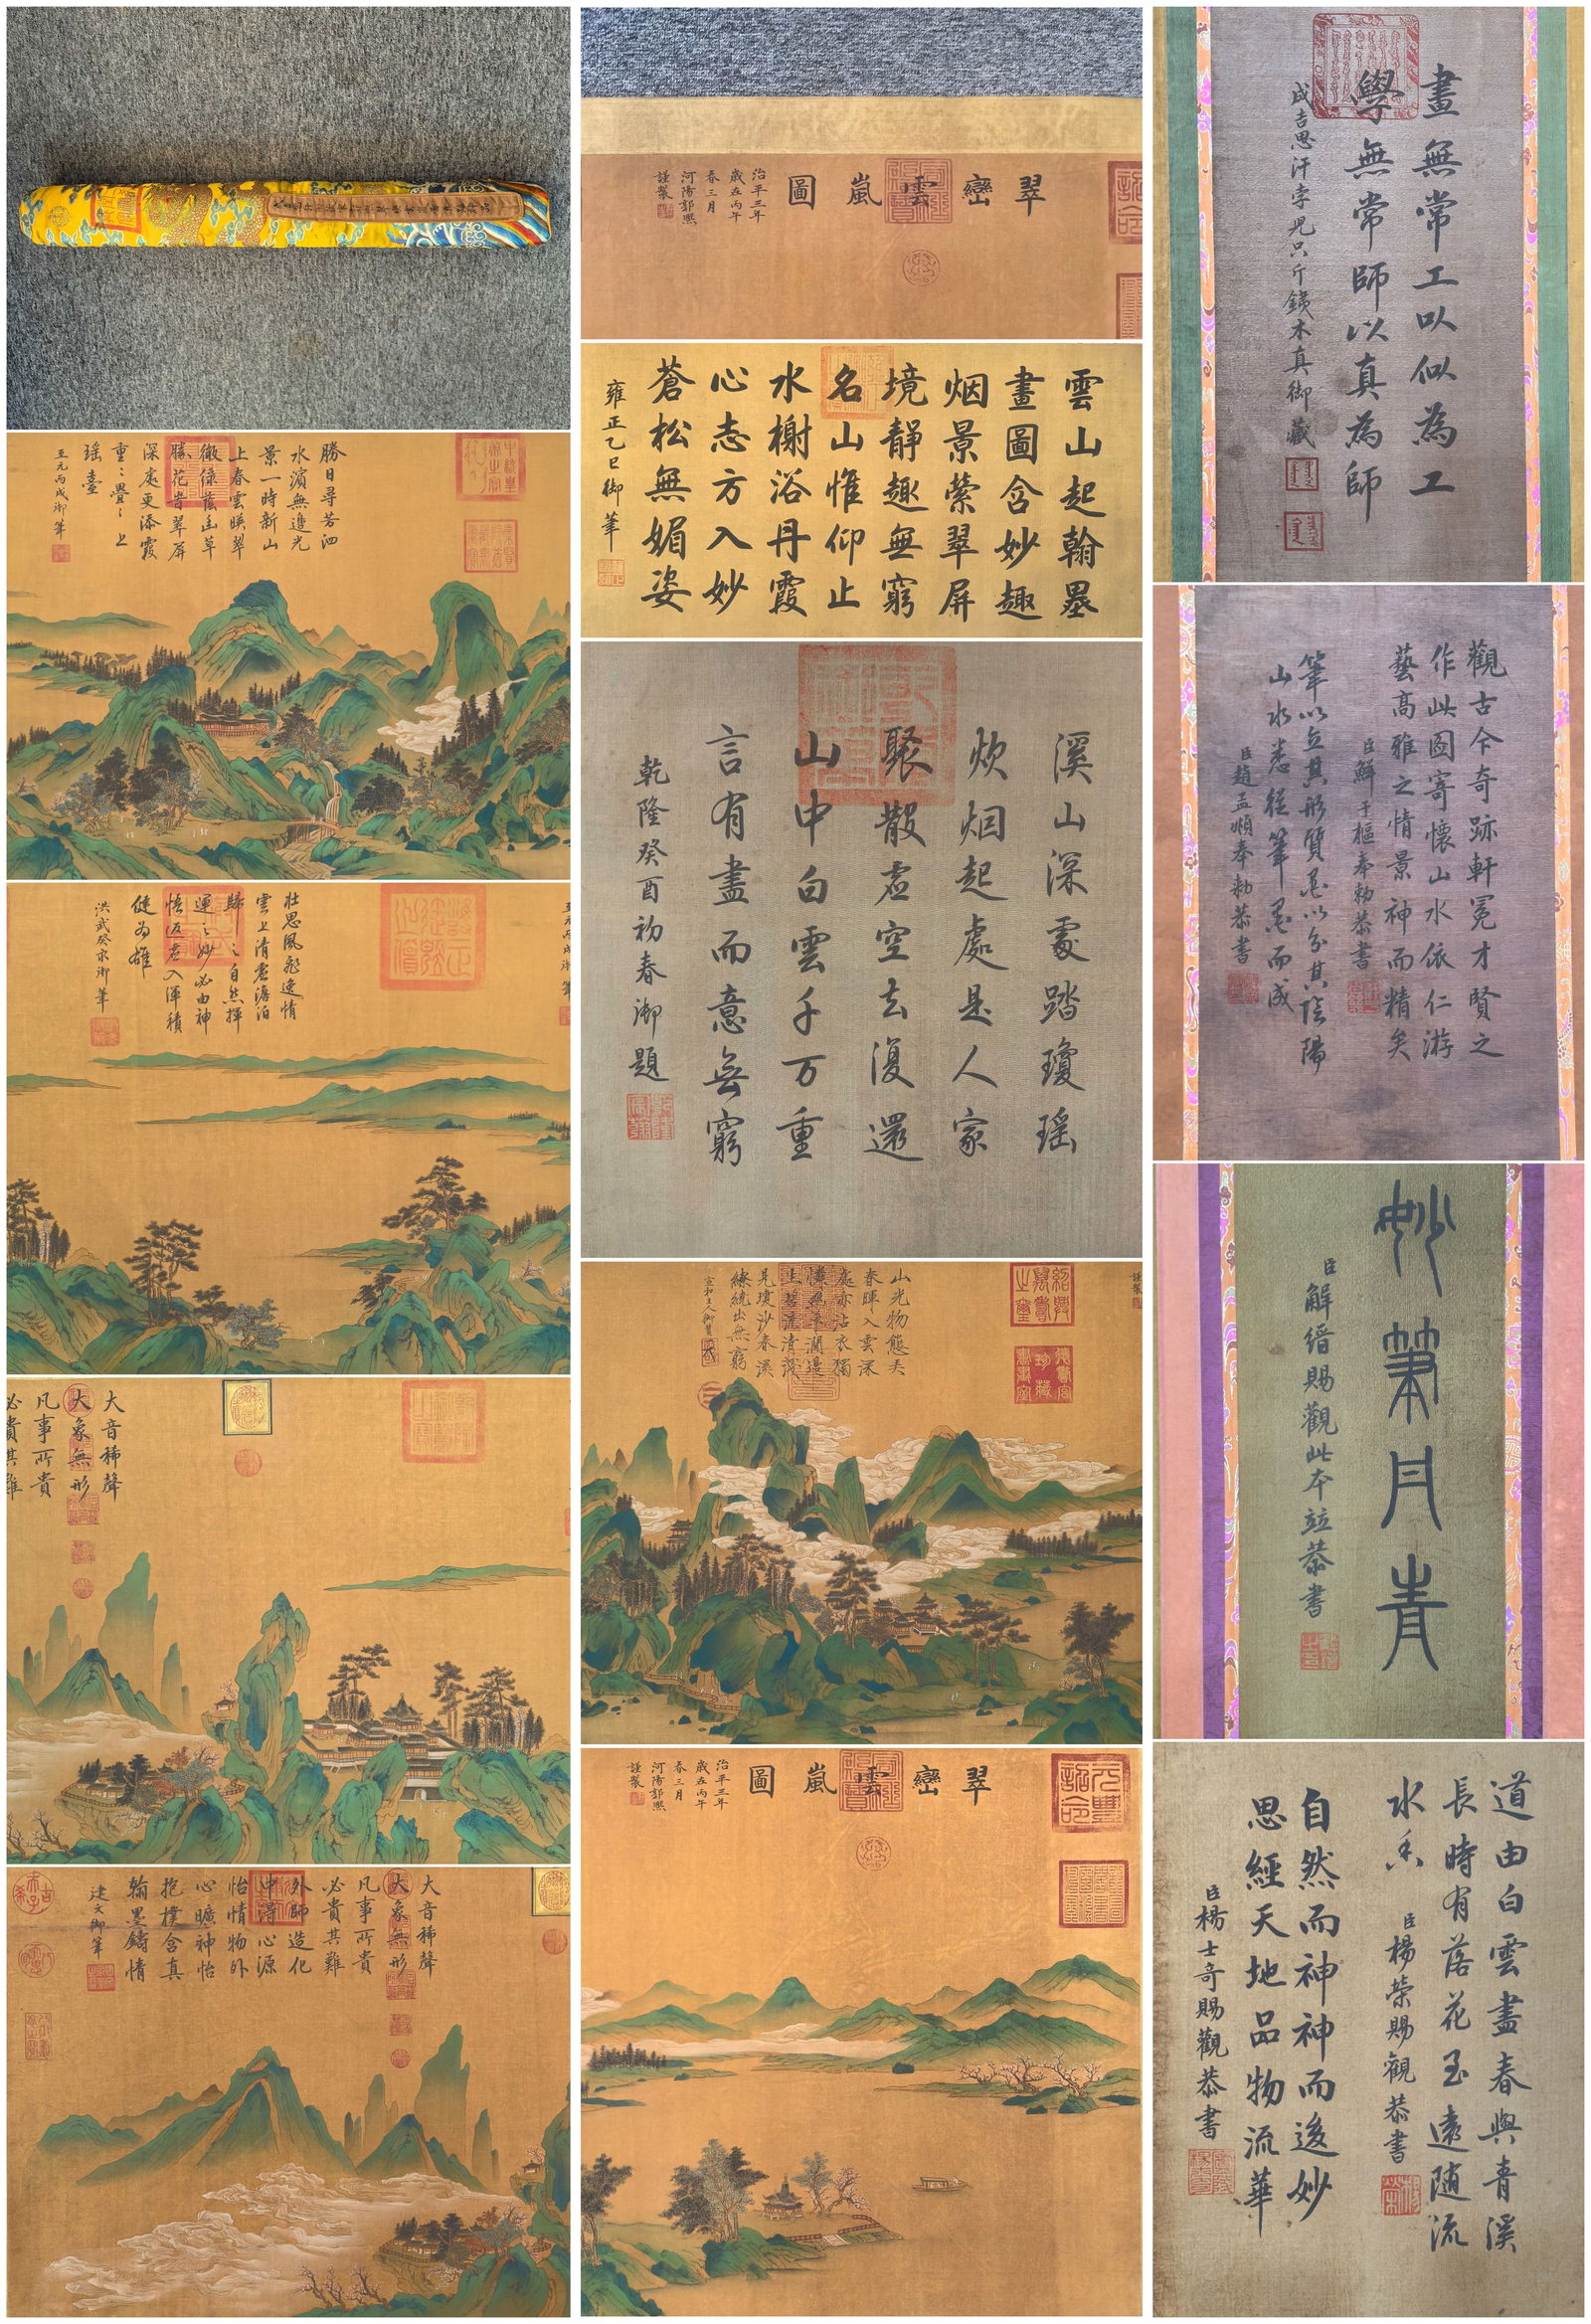 勝日尋芳泗
水濱無邊光
景一時新山
上春雲暎翠
微綠蔭幽草
勝花音翠屏
深處更添霞
重々疊々上
瑤臺
至元丙戌御筆
壯思風飛逸情
雲上清虛澹泊
歸之自然揮
運之妙必由神
悟返虛入渾積
健為雄
洪武癸亥御筆
大音稀聲
大象無形
凡事所貴
必貴其難
大音稀聲
大象無形
凡事所貴
必貴其難
外師造化
中得心源
怡情物外
心曠神怡
抱樸含真
翰墨鑄情
建文御筆
翠巒雲嵐圖
治平三年
歲在丙午
春三月
河陽郭熙
謹製
雲山起翰墨
畫圖含妙趣
烟景縈翠屏
境靜趣無窮
名山惟仰止
水榭浴丹霞
心志方入妙
蒼松無媚姿
雍正乙巳御筆
溪山深處踏瓊瑤
炊烟起處是人家
聚散虛空去復還
山中白雲千万重
言有盡而意無窮
乾隆癸酉初春御題
山光物態弄
春暉入雲深
處亦沾衣獨
憐幽草澗邊
生碧流清淺
見瓊沙春溪
繚繞出無窮
宣和主人御賞
翠巒雲嵐圖
治平三年
歲在丙午
春三月
河陽郭熙
謹製
畫無常工以似為工
學無常師以真為師
成吉思汗孛兒只斤鐵木真御藏
觀古今奇跡軒冕才賢之
作此圖寄懷山水依仁游
藝高雅之情景神而精矣
臣鮮于樞奉勅恭書
筆以立其形質墨以分其陰陽
山水悉從筆墨而成
臣趙孟頫奉勅恭書
妙筆丹青
臣解縉賜觀此本並恭書
道由白雲盡春與青溪
長時有落花至遠随流
水香
臣楊榮賜觀恭書
自然而神神而後妙
思經天地品物流華
臣楊士奇賜觀恭書